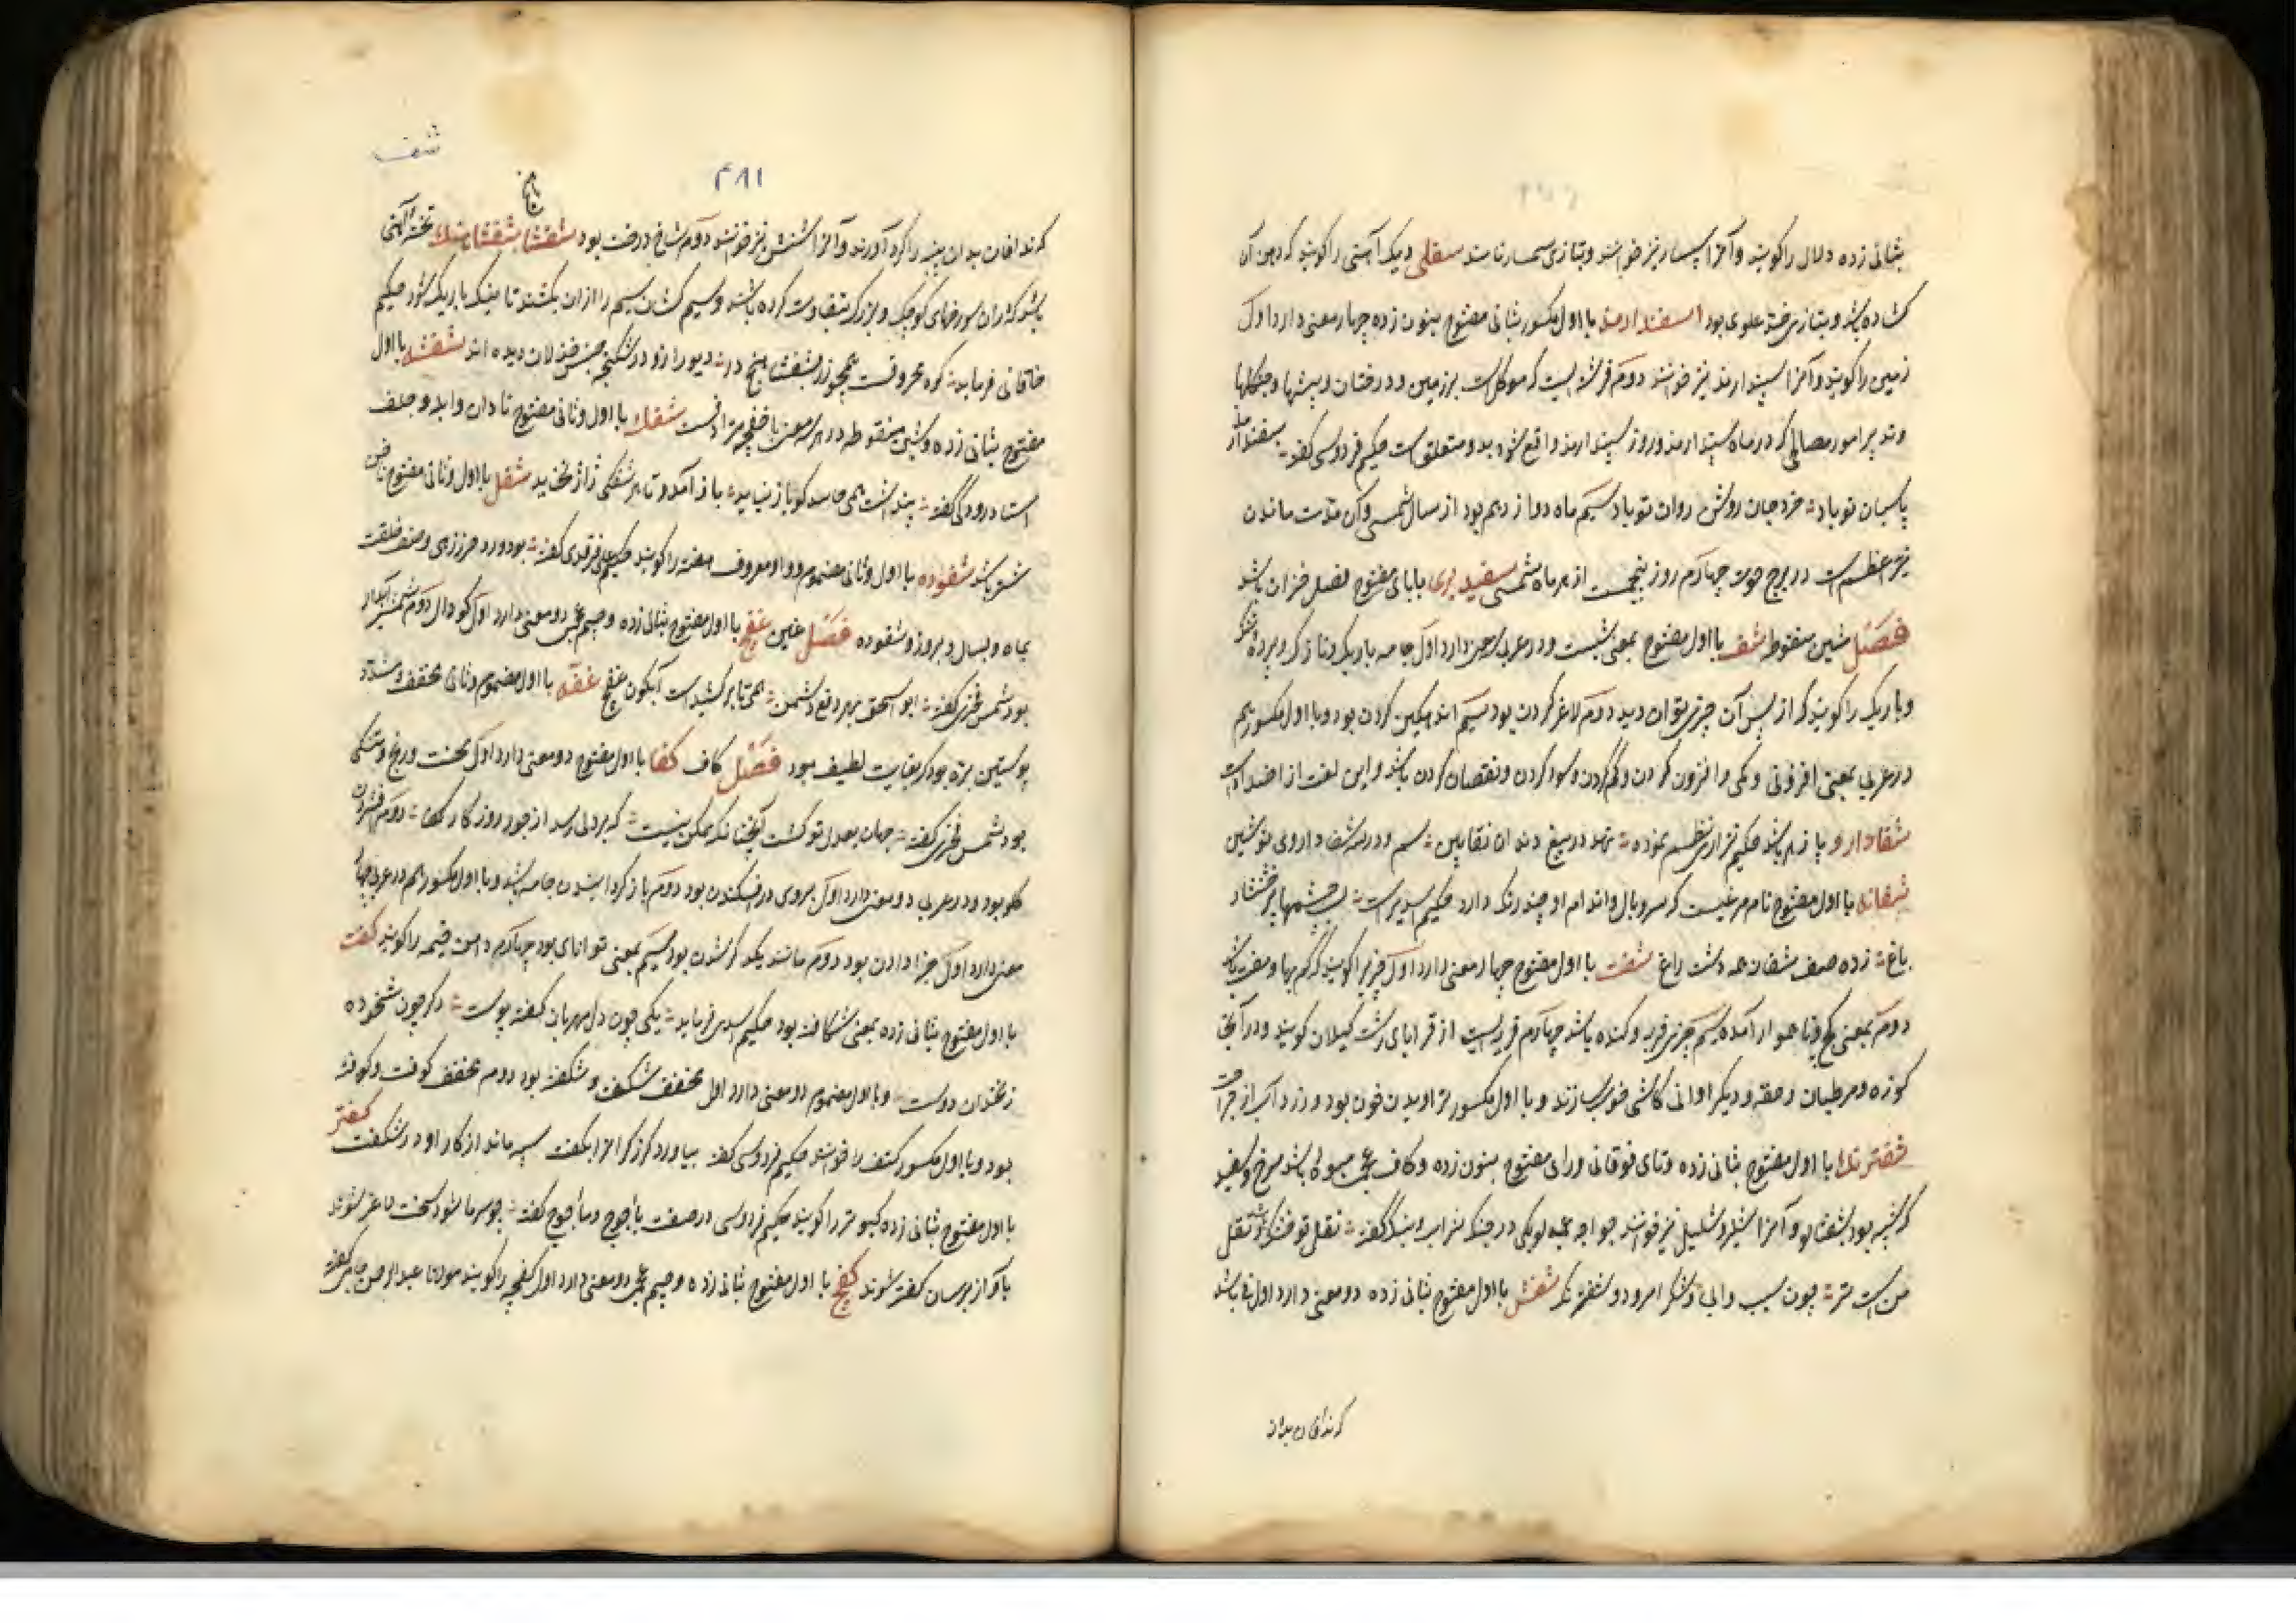 بثانی زده دلال را گویند و آنرا سپسار نیز خوانند و بتازی سمسار نامند سفلی دیک آهنی را گویند که دهن آن
کشاده باشد و بتازی علوی بود اسفندارمذ با اول مکسور بثانی مفتوح بنون زده چهار معنی دارد اول
زمین را گویند و آنرا سپندارمذ نیز خوانند دوم فرشته ایست که موکل است بر زمین و درختان و بیشها و جنگلها
و تدبیر امور مصالحی که در ماه سپندارمذ و روز سپندارمذ واقع شود بدو متعلق است حکیم فردوسی گفته سفندارمذ
پاسبان تو باد خرد جان روشن روان تو باد سیم ماه دوازدهم بود از سال شمسی و آن مدت ماندن
نیر اعظم است در برج حوت چهارم روز پنجمست از هر ماه شمسی سفید بری با بای مفتوح فصل خزان باشد
فصل شین منقوطه شف با اول مفتوح بمعنی شبست و در عربی سه معنی دارد اول جامه باریک و نازک و پرده تنک
و باریک را گویند که از پس آن چیزی توان دید دوم لاغر کردن بود سیم اندهگین کردن بود و با اول مکسور هم
در عربی بمعنی افزونی و کمی و افزون کردن و کم کردن و سود کردن و نقصان کردن باشد و این لغت از اضداد است
شفادارو پازهر باشد حکیم نزاری نظم نموده دارد در تیغ دندان سم و در شفاداروی نوشین
شفانه با اول مفتوح نام مرغیست که سر و بال و اندام او چند رنگ دارد حکیم اسدی راست لب چشمها پر خشنسار
باغ زده صف شفانه همه دشت و راغ شفت با اول مفتوح چهار معنی دارد اول چیزیرا گویند که کم بها و مفت باشد
دوم بمعنی کج و ناهموار آمده سیم چیزی فربه و گنده باشد چهارم قریه ایست از قرایای رشت گیلان گویند و در آنجا
کوزه و مرطبان و حقه و دیگر اوانی کاشی خوب سازند و با اول مکسور تراویدن خون بود و زرداب از جراحت
شفترنک با اول مفتوح بثانی زده و تای فوقانی و رای مفتوح بنون زده و کاف عجمی میوه ای باشد سرخ و سفید
که شبیه بود بشفتالو و آنرا شلیل نیز خوانند خواجه عمید لوبکی در جنگ شراب و بنگ گفته نقل تو خشک و نقل
من است تر چون سیب و آبی و شکر امرود و شفترنک شفش با اول مفتوح بثانی زده دو معنی دارد اول باشد
که ندافان بدان
شف
۴۸۱
که ندافان بدان پنبه را گرد آورند و آنرا شنش نیز خوانند دوم شاخ درخت بود شفشا شفشاهنک تخته آهنی
باشد که در آن سوراخهای کوچک و بزرک بتفاوت کرده باشند و سیم کشان سیم را از آن بکشند تا باریک شود حکیم
خاقانی فرماید که معروفست همچو زر بشفشاهنج در دیو را زو در شکنجه حبس خذلان دیده اند شفشه با اول
مفتوح بثانی زده و شین منقوطه در هر سه معنی با خفچه مترادفست شفک با اول و ثانی مفتوح نادان و ابله و جلف
استاد رودکی گفته پنداشت همی حاسد کو باز نیاید باز آمد و تا هر شفکی ژاژ نخاید شفل با اول و ثانی مفتوح ناخن
شتر باشد شفوده با اول و ثانی مضموم و واو معروف هفته را گویند حکیم علی فرقدی گفته بود ورد حرز زهی وصف خلقت
بماه و بسال و بروز و شفوده فصل غین غفچ با اول مفتوح بثانی زده و جیم عجمی دو معنی دارد اول گودال دوم شمشیر آبدار
بود شمس فخری گفته ابو اسحق بهر دفع دشمن همی تا برکشیدست آبگون غفچ غفه با اول مضموم و ثانی مخفف و مشدد
پوستین بره بود که بغایت لطیف بود فصل کاف کفا با اول مفتوح دو معنی دارد اول محنت و رنج و سختی
بود شمس فخری گفته جهان بعدل تو گشت آنچنانکه ممکن نیست که بر دلی رسد از جور روزگار کفا دوم فشردن
گلو بود و در عربی دو معنی دارد اول بروی درافکندن بود دوم باز گردانیدن جامه باشد و با اول مکسور هم در عربی چهار
معنی دارد اول جزا دادن بود دوم مانند یکدیگر شدن بود سیم بمعنی توانای بود چهارم دامن خیمه را گویند کفت
با اول مفتوح بثانی زده بمعنی شکافته بود حکیم اسدی فرماید یکی چون دل مهربان کفته پوست دگر چون شخوده
زنخدان دوست و با اول مضموم دو معنی دارد اول مخفف شکفت و شکفته بود دوم مخفف کوفت و کوفته
بود و با اول مکسور کتف را خوانند حکیم فردوسی گفته بیاورد گرز گران را بکفت سپه ماند از کار او در شکفت کفتر
با اول مفتوح بثانی زده کبوتر را گویند حکیم فردوسی در صفت یأجوج و مأجوج گفته چو سرما شود سخت لاغر شوند
باواز برسان کفتر شوند کفچ با اول مفتوح بثانی زده و جیم عجمی دو معنی دارد اول کفچه را گویند مولانا عبدالرحمن جامی گفته